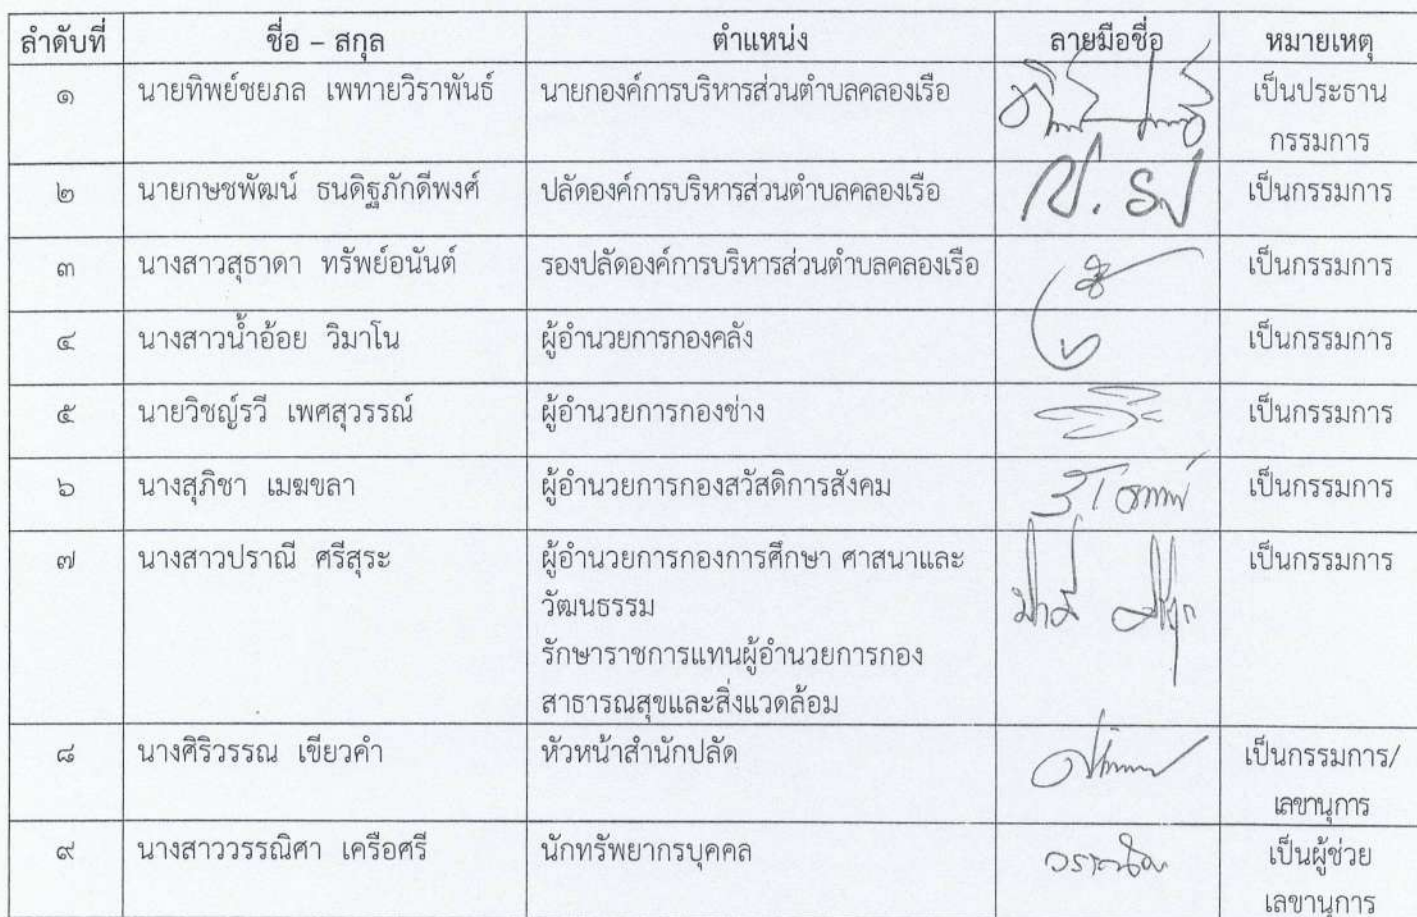 ลำดับที่ ชื่อ – สกุล ตำแหน่ง ลายมือชื่อ หมายเหตุ
๑ นายทิพย์ชยภล เพทายวิราพันธ์ นายกองค์การบริหารส่วนตำบลคลองเรือ เป็นประธาน
กรรมการ
๒ นายกษชพัฒน์ ธนดิฐภักดีพงศ์ ปลัดองค์การบริหารส่วนตำบลคลองเรือ เป็นกรรมการ
๓ นางสาวสุธาดา ทรัพย์อนันต์ รองปลัดองค์การบริหารส่วนตำบลคลองเรือ เป็นกรรมการ
๔ นางสาวน้ำอ้อย วิมาโน ผู้อำนวยการกองคลัง เป็นกรรมการ
๕ นายวิชญ์รวี เพศสุวรรณ์ ผู้อำนวยการกองช่าง เป็นกรรมการ
๖ นางสุภิชา เมฆขลา ผู้อำนวยการกองสวัสดิการสังคม เป็นกรรมการ
๗ นางสาวปราณี ศรีสุระ ผู้อำนวยการกองการศึกษา ศาสนาและ เป็นกรรมการ
วัฒนธรรม
รักษาราชการแทนผู้อำนวยการกอง
สาธารณสุขและสิ่งแวดล้อม
๘ นางศิริวรรณ เขียวคำ หัวหน้าสำนักปลัด เป็นกรรมการ/
เลขานุการ
๙ นางสาววรรณิศา เครือศรี นักทรัพยากรบุคคล เป็นผู้ช่วย
เลขานุการ